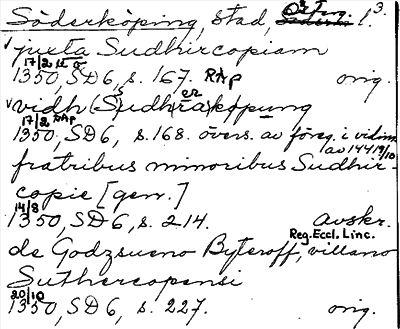 Söderköping, stad, Österg. l. 3.
juxta Sudhircopiam
17/2
1350, SD 6, s. 167. RAp orig.
vidh (Sudh(er)a)köpung
17/2 RAp
1350, SD 6, s. 168. övers. av föreg. i vidim.
av 1441 9/10
fratribus minoribus Sudhir-
copie [gen.]
14/8
1350, SD 6, s. 214. avskr.
Reg. Eccl. Linc.
de Godzsueno Byteroff, villano
Suthercopensi
20/10
1350, SD 6, s. 227. orig.